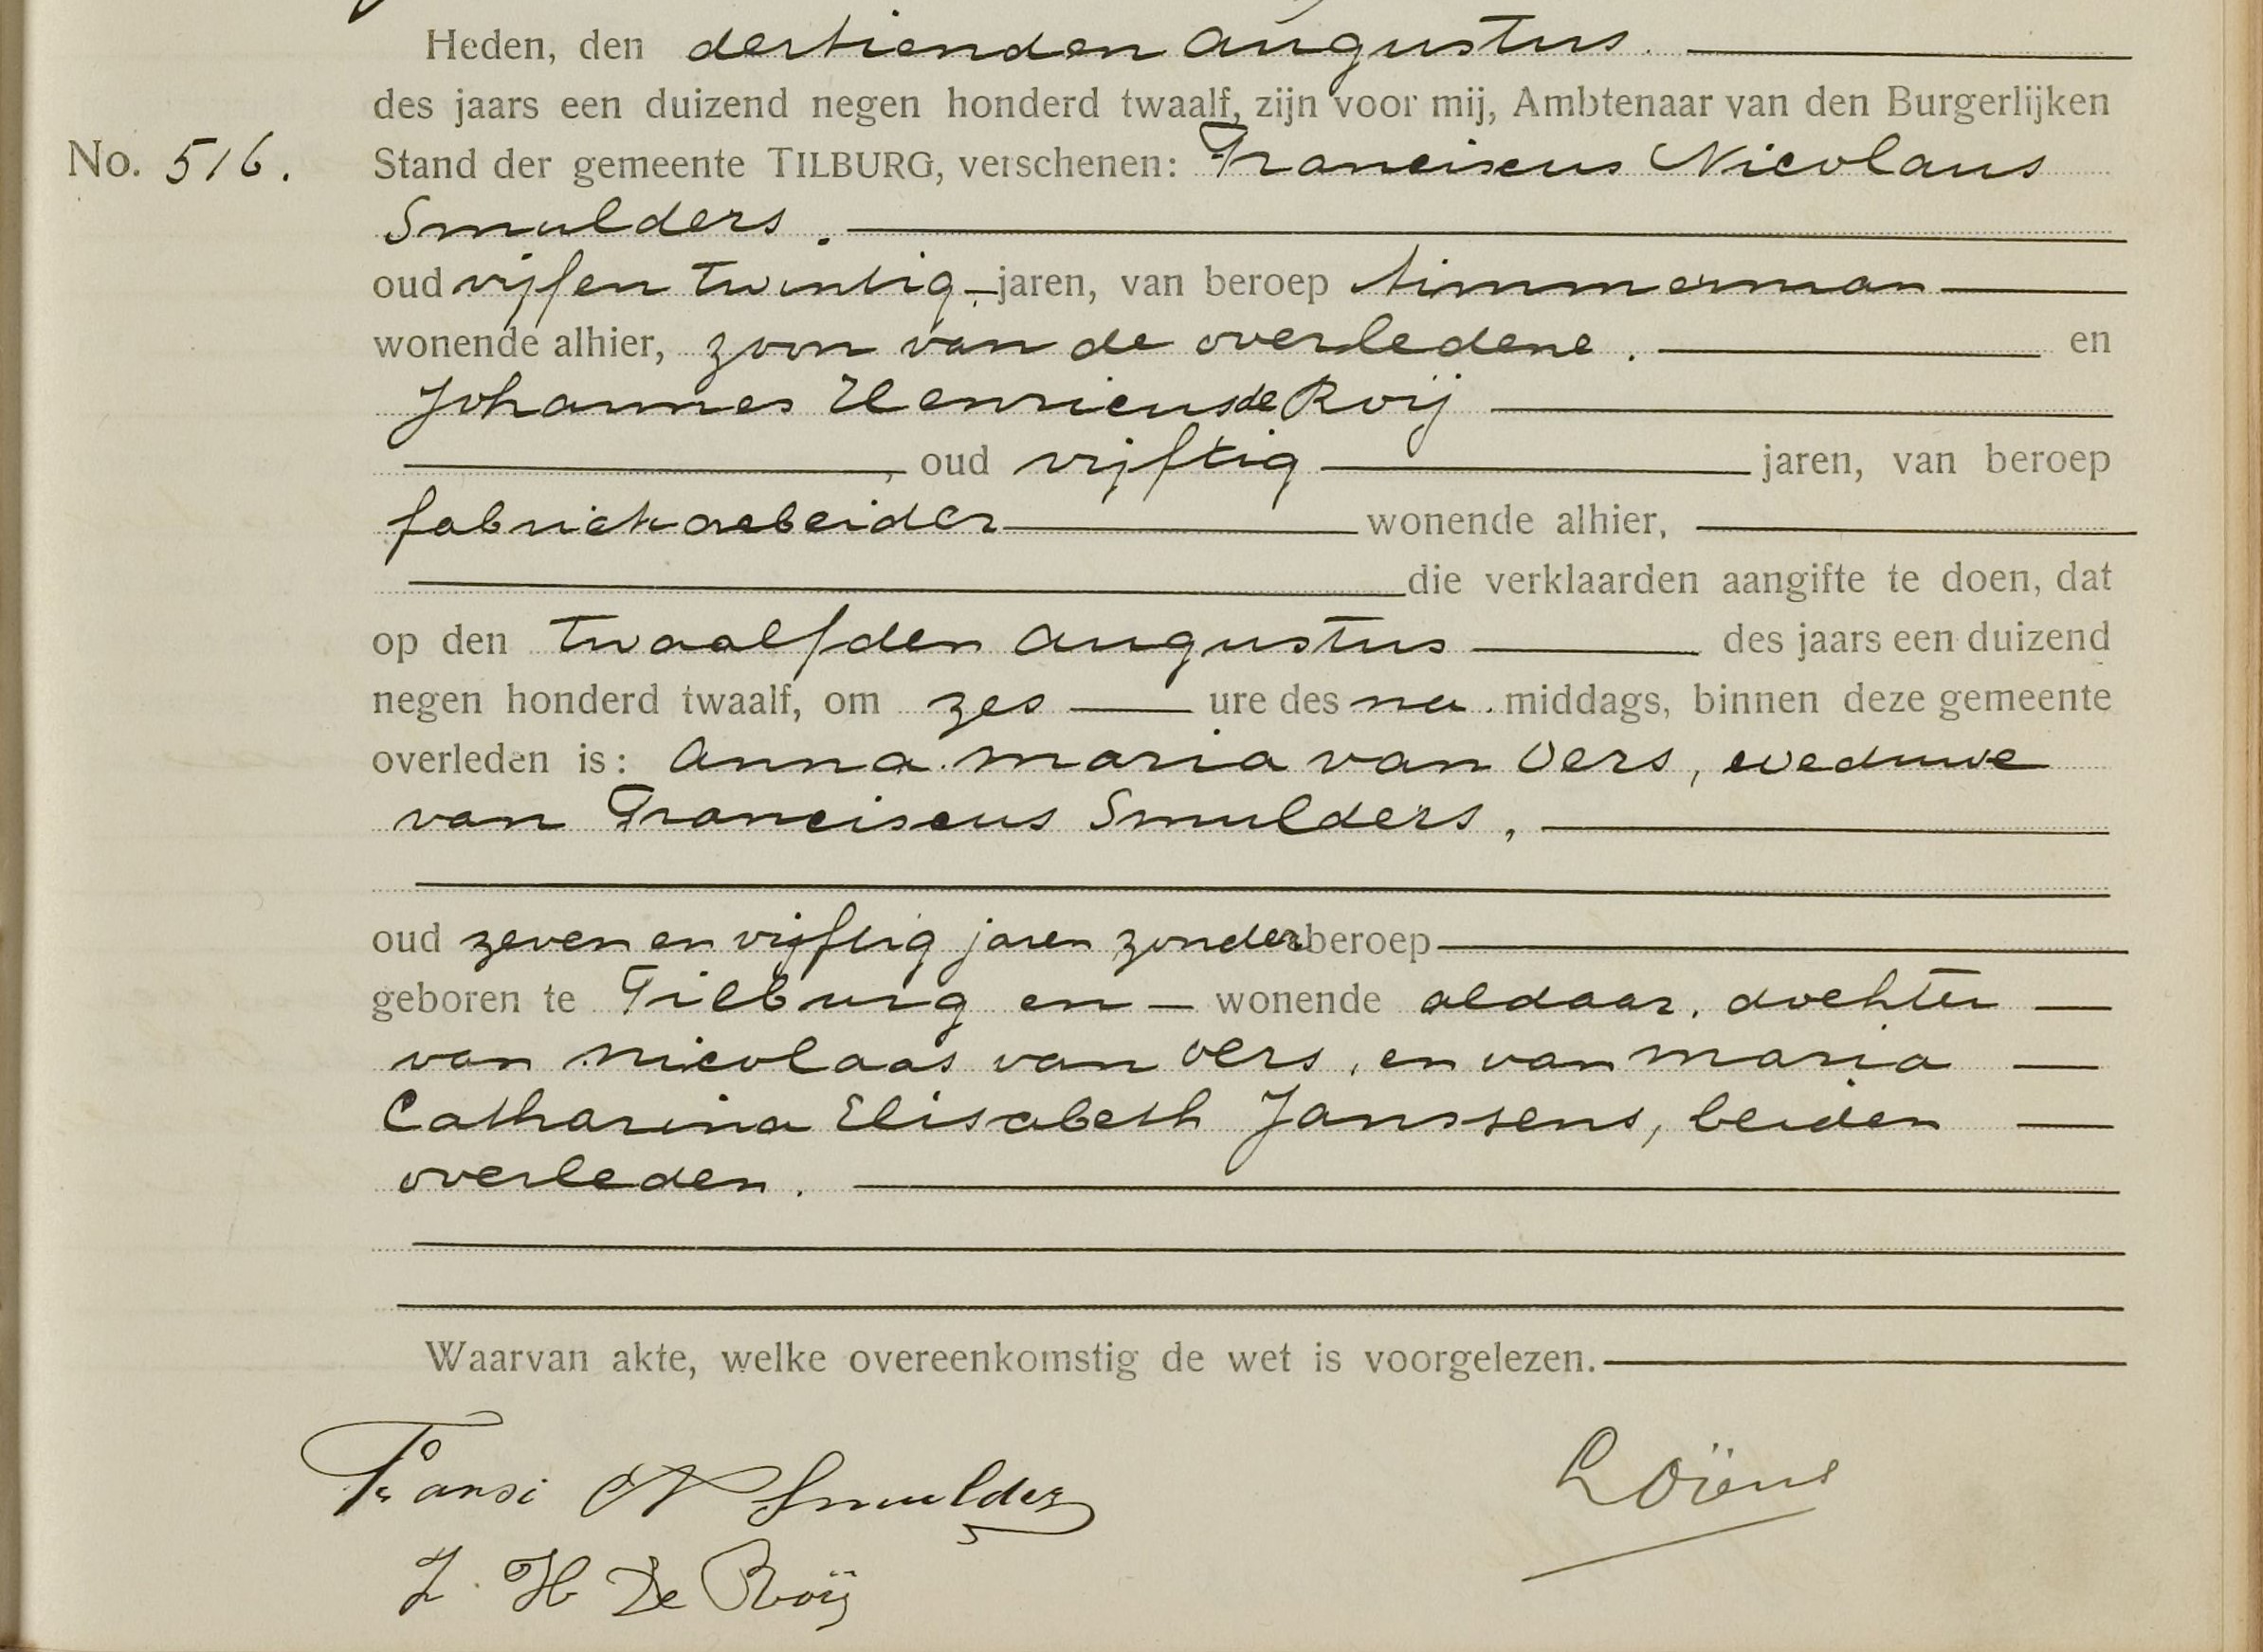 Heden, den dertienden Augustus.
des jaars een duizend negen honderd twaalf, zijn voor mij, Ambtenaar van den Burgerlijken
No. 516. Stand der gemeente TILBURG, verschenen: Franciscus Nicolaus
Smulders.
oud vijfen twintig jaren, van beroep timmerman
wonende alhier, zoon van de overledene. en
Johannes Henricus de Roij
, oud vijftig jaren, van beroep
fabriekarbeider wonende alhier,
die verklaarden aangifte te doen, dat
op den twaalfden Augustus des jaars een duizend
negen honderd twaalf, om zes ure des na middags, binnen deze gemeente
overleden is: Anna Maria van Oers, weduwe
van Franciscus Smulders,
oud zeven en vijftig jaren zonder beroep
geboren te Tilburg en wonende aldaar, dochter
van Nicolaas van Oers, en van Maria
Catharina Elisabeth Janssens, beiden
overleden.
Waarvan akte, welke overeenkomstig de wet is voorgelezen.
Fransi N Smulders
J. H De Roij